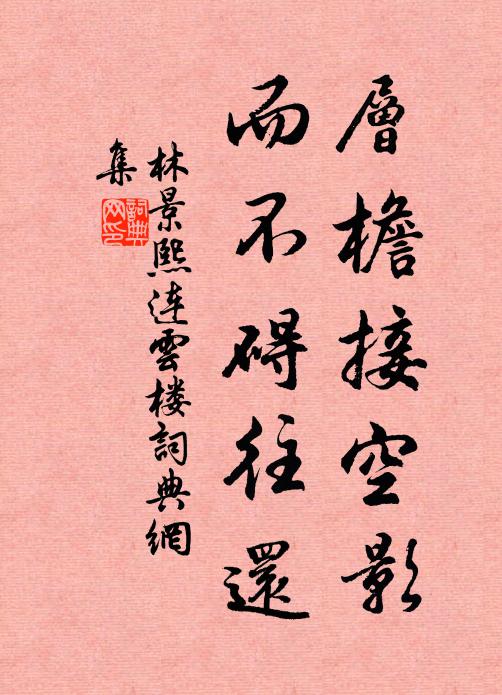 層檐接空影
而不碍往還
林景熙連雲楼詞典網
集
詞典
网印